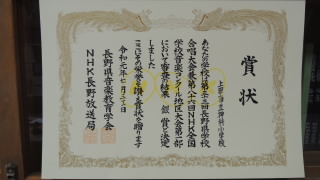 賞状
上田市立神科小学校
あなたの学校は第六十三回長野県学校
合唱大会兼第八十六回NHK全国
学校音楽コンクール地区大会第二部
において審査の結果 銀賞と決定
しました
ここにその栄誉を讃え賞状を贈ります
令和元年七月二十七日
長野県音楽教育学会
NHK長野放送局